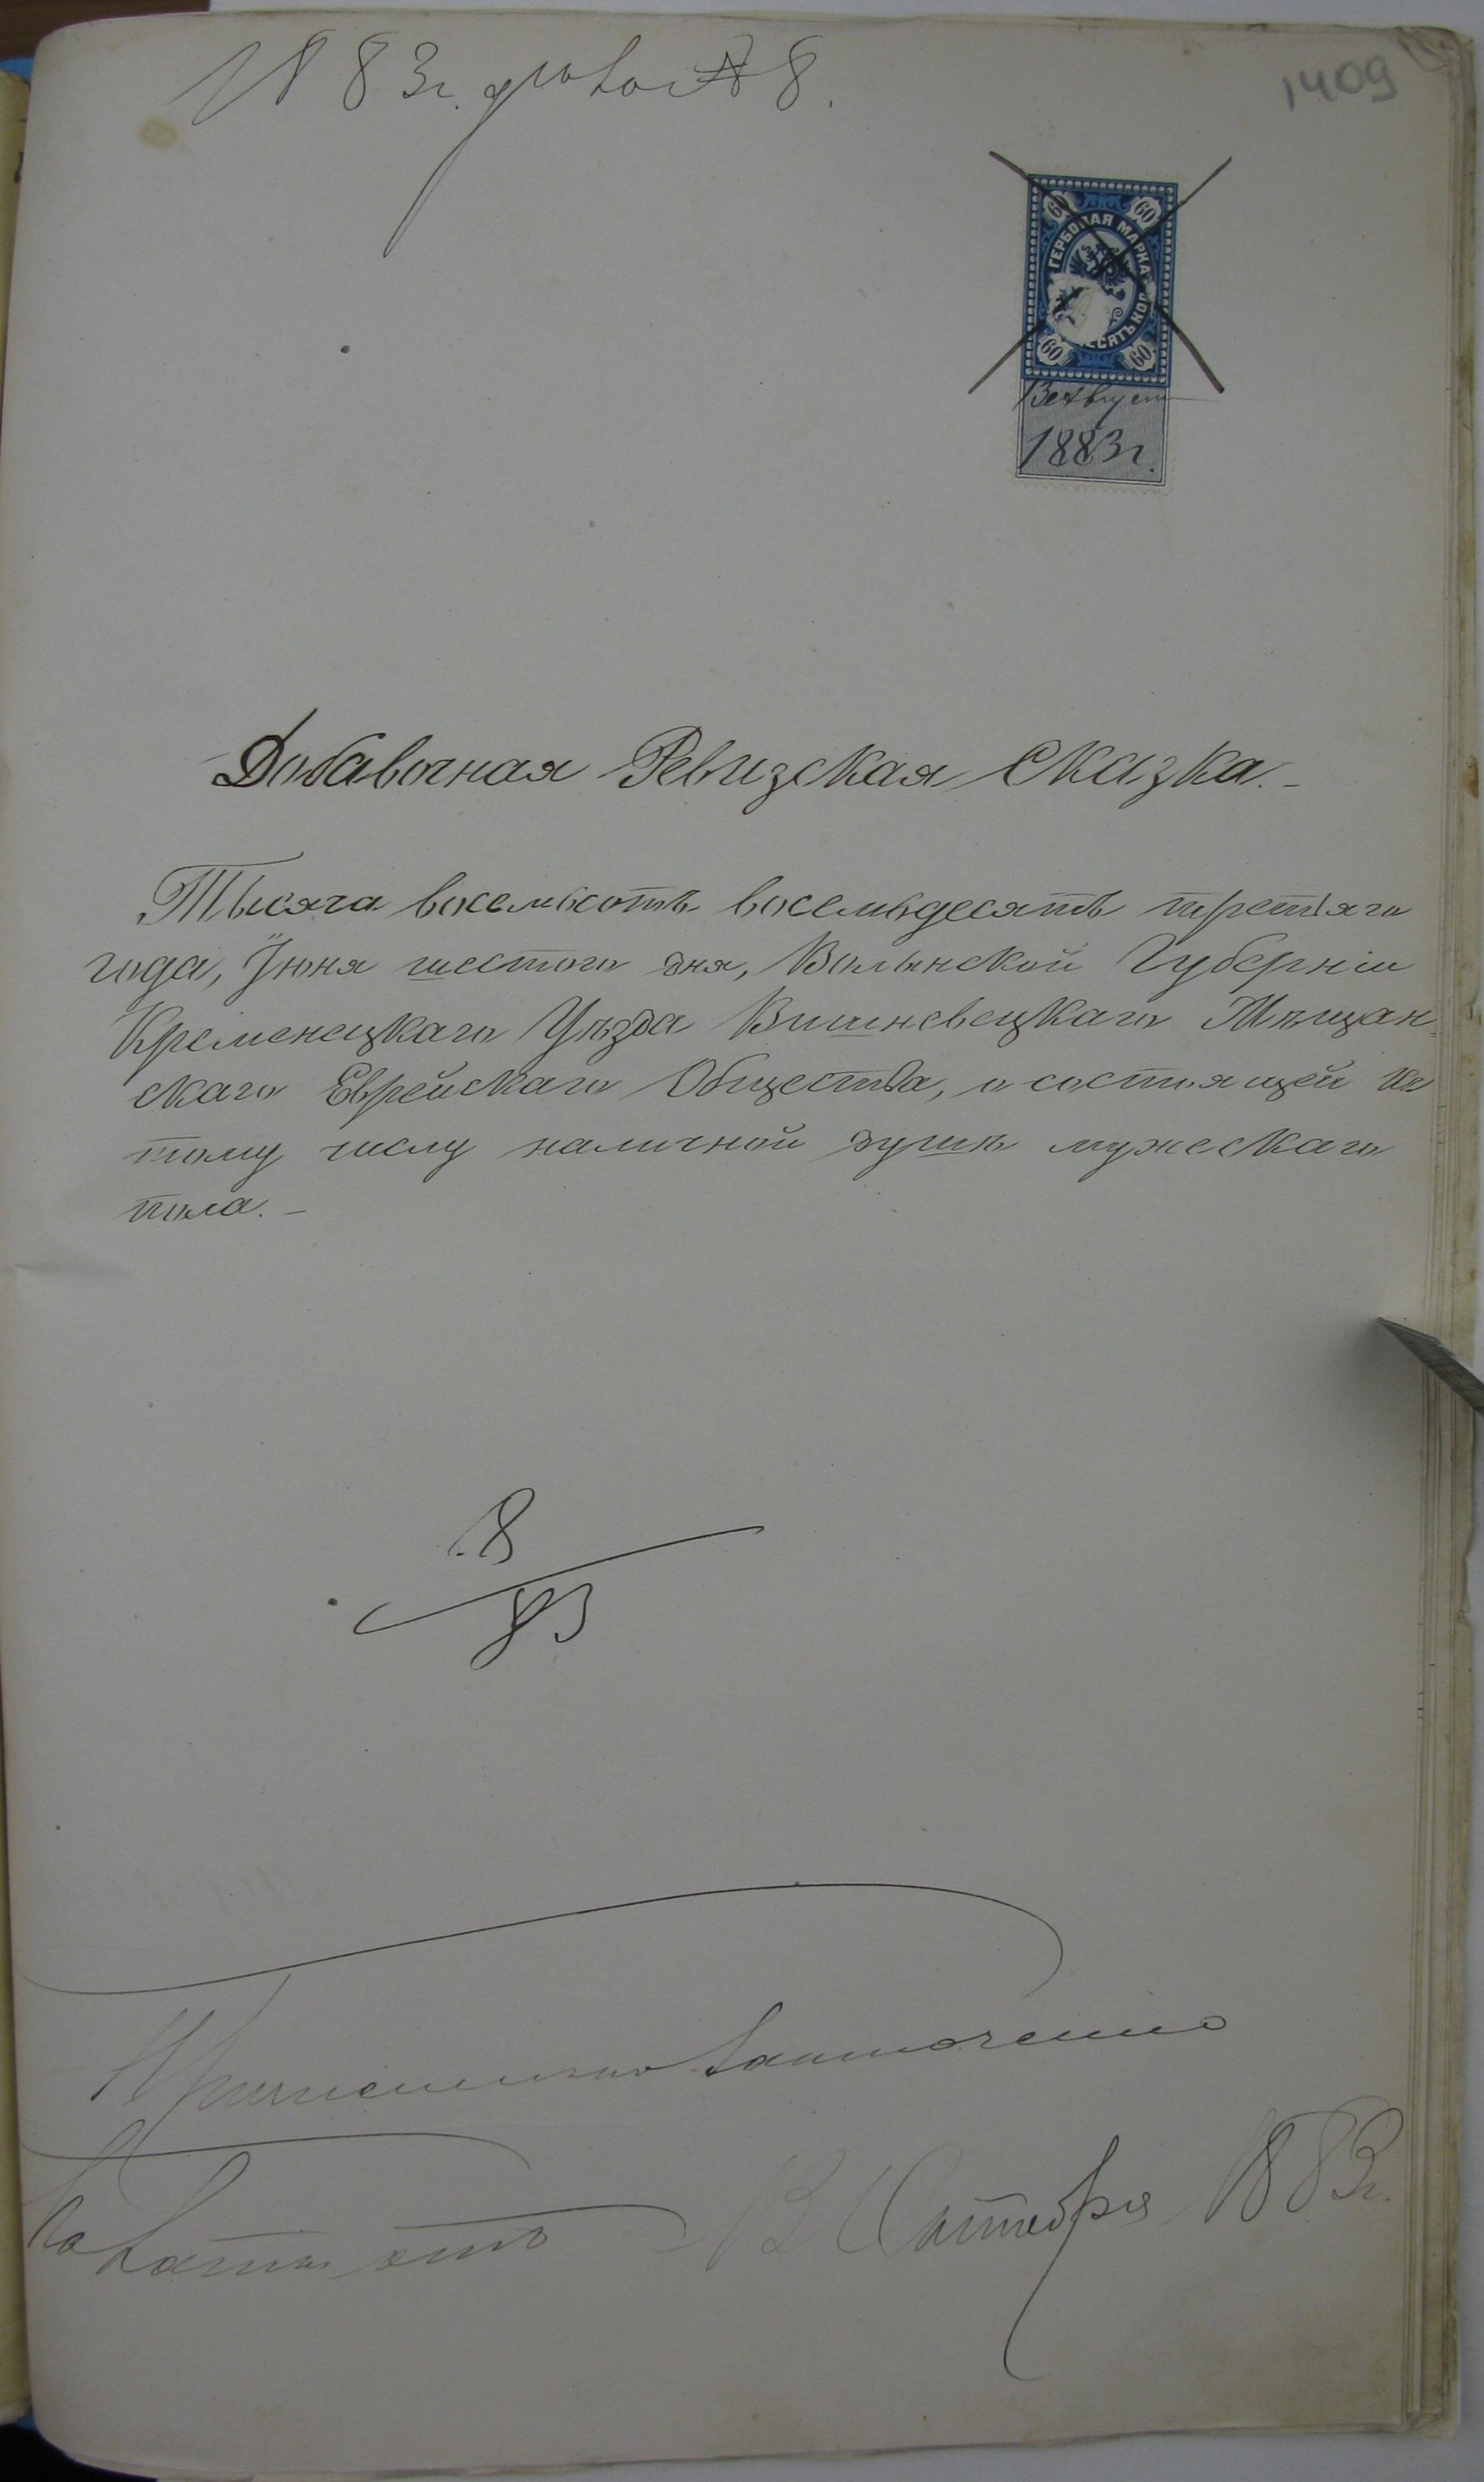 1883г. № 8.
1409
60 60
ГЕРБОВАЯ МАРКА
ДЕСЯТЬ КОП
60 60
Августа
1883г.
Добавочная Ревизская Сказка.-
Тысяча восемьсотъ восемьдесятъ третьяго
года, Іюня шестого дня, Волынской Губерніи
Кременецкаго Уѣзда Вишневецкаго Мѣщан-
скаго Еврейскаго Общества, о состоящей къ
тому числу наличной душѣ мужескаго
пола.-
8
83
Октября 1883г.